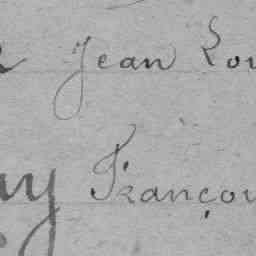 Jean Lou
ay Françoi